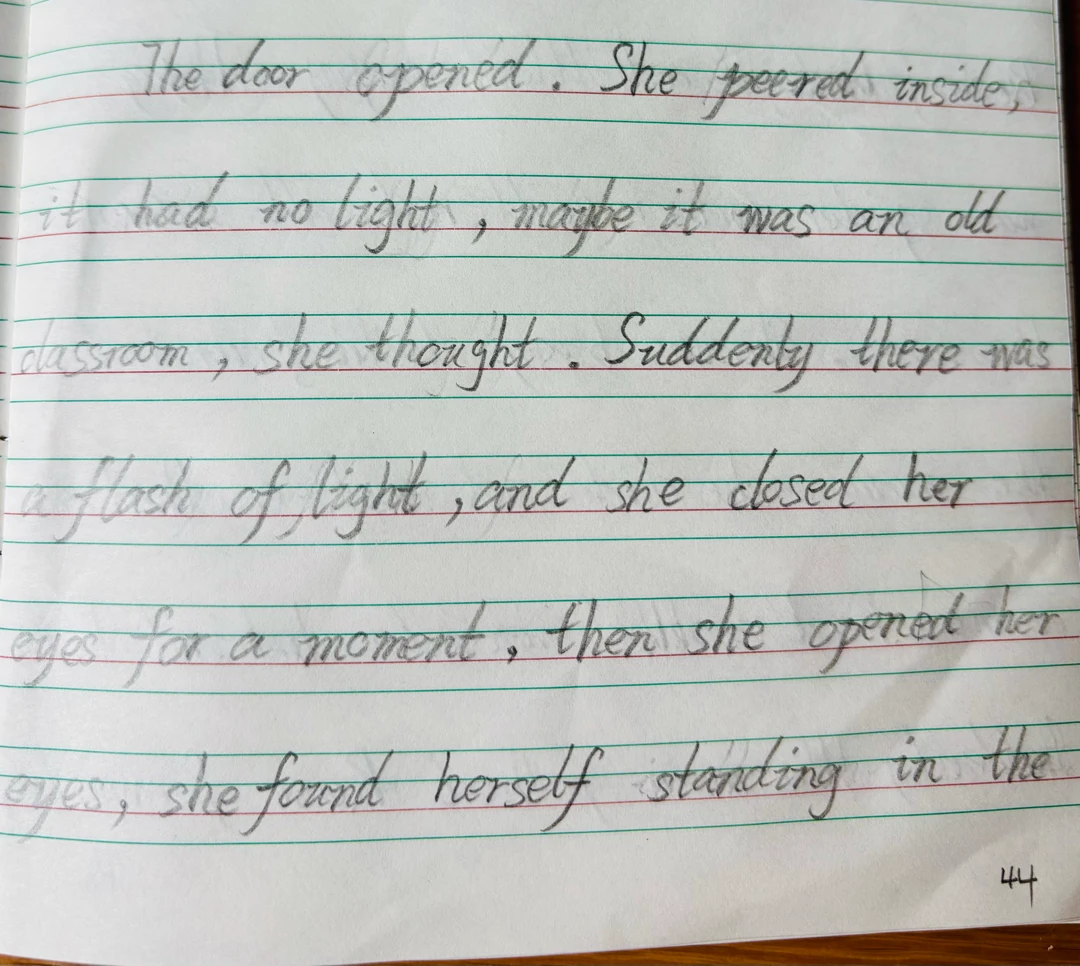 The door opened. She peered inside,
it had no light, maybe it was an old
classroom, she thought. Suddenly there was
a flash of light, and she closed her
eyes for a moment, then she opened her
eyes, she found herself standing in the
44